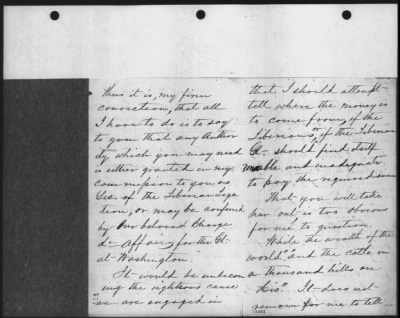 thus it is, my firm
conviction, that all
I have to do is to say
to you that any Author
ity which you may need
is either granted in my
commission to you as
Sec. of the Liberian Lega
tion, or may be confered
by our beloved Charge
d- Affairs, for the Gt-
at Washington.
It would be unbecom
ing the righteous cause
we are engaged in
that I should attempt
tell where the money is
to come from, if the
Liberians, if the Liberian
Gt- should find itself
unable and inadequate
to pay the required sum
That you will take
her out is too obvious
for me to question.
While the wealth of the
world", and the cattle on
a thousand hills are
his". It does not
for me to tell